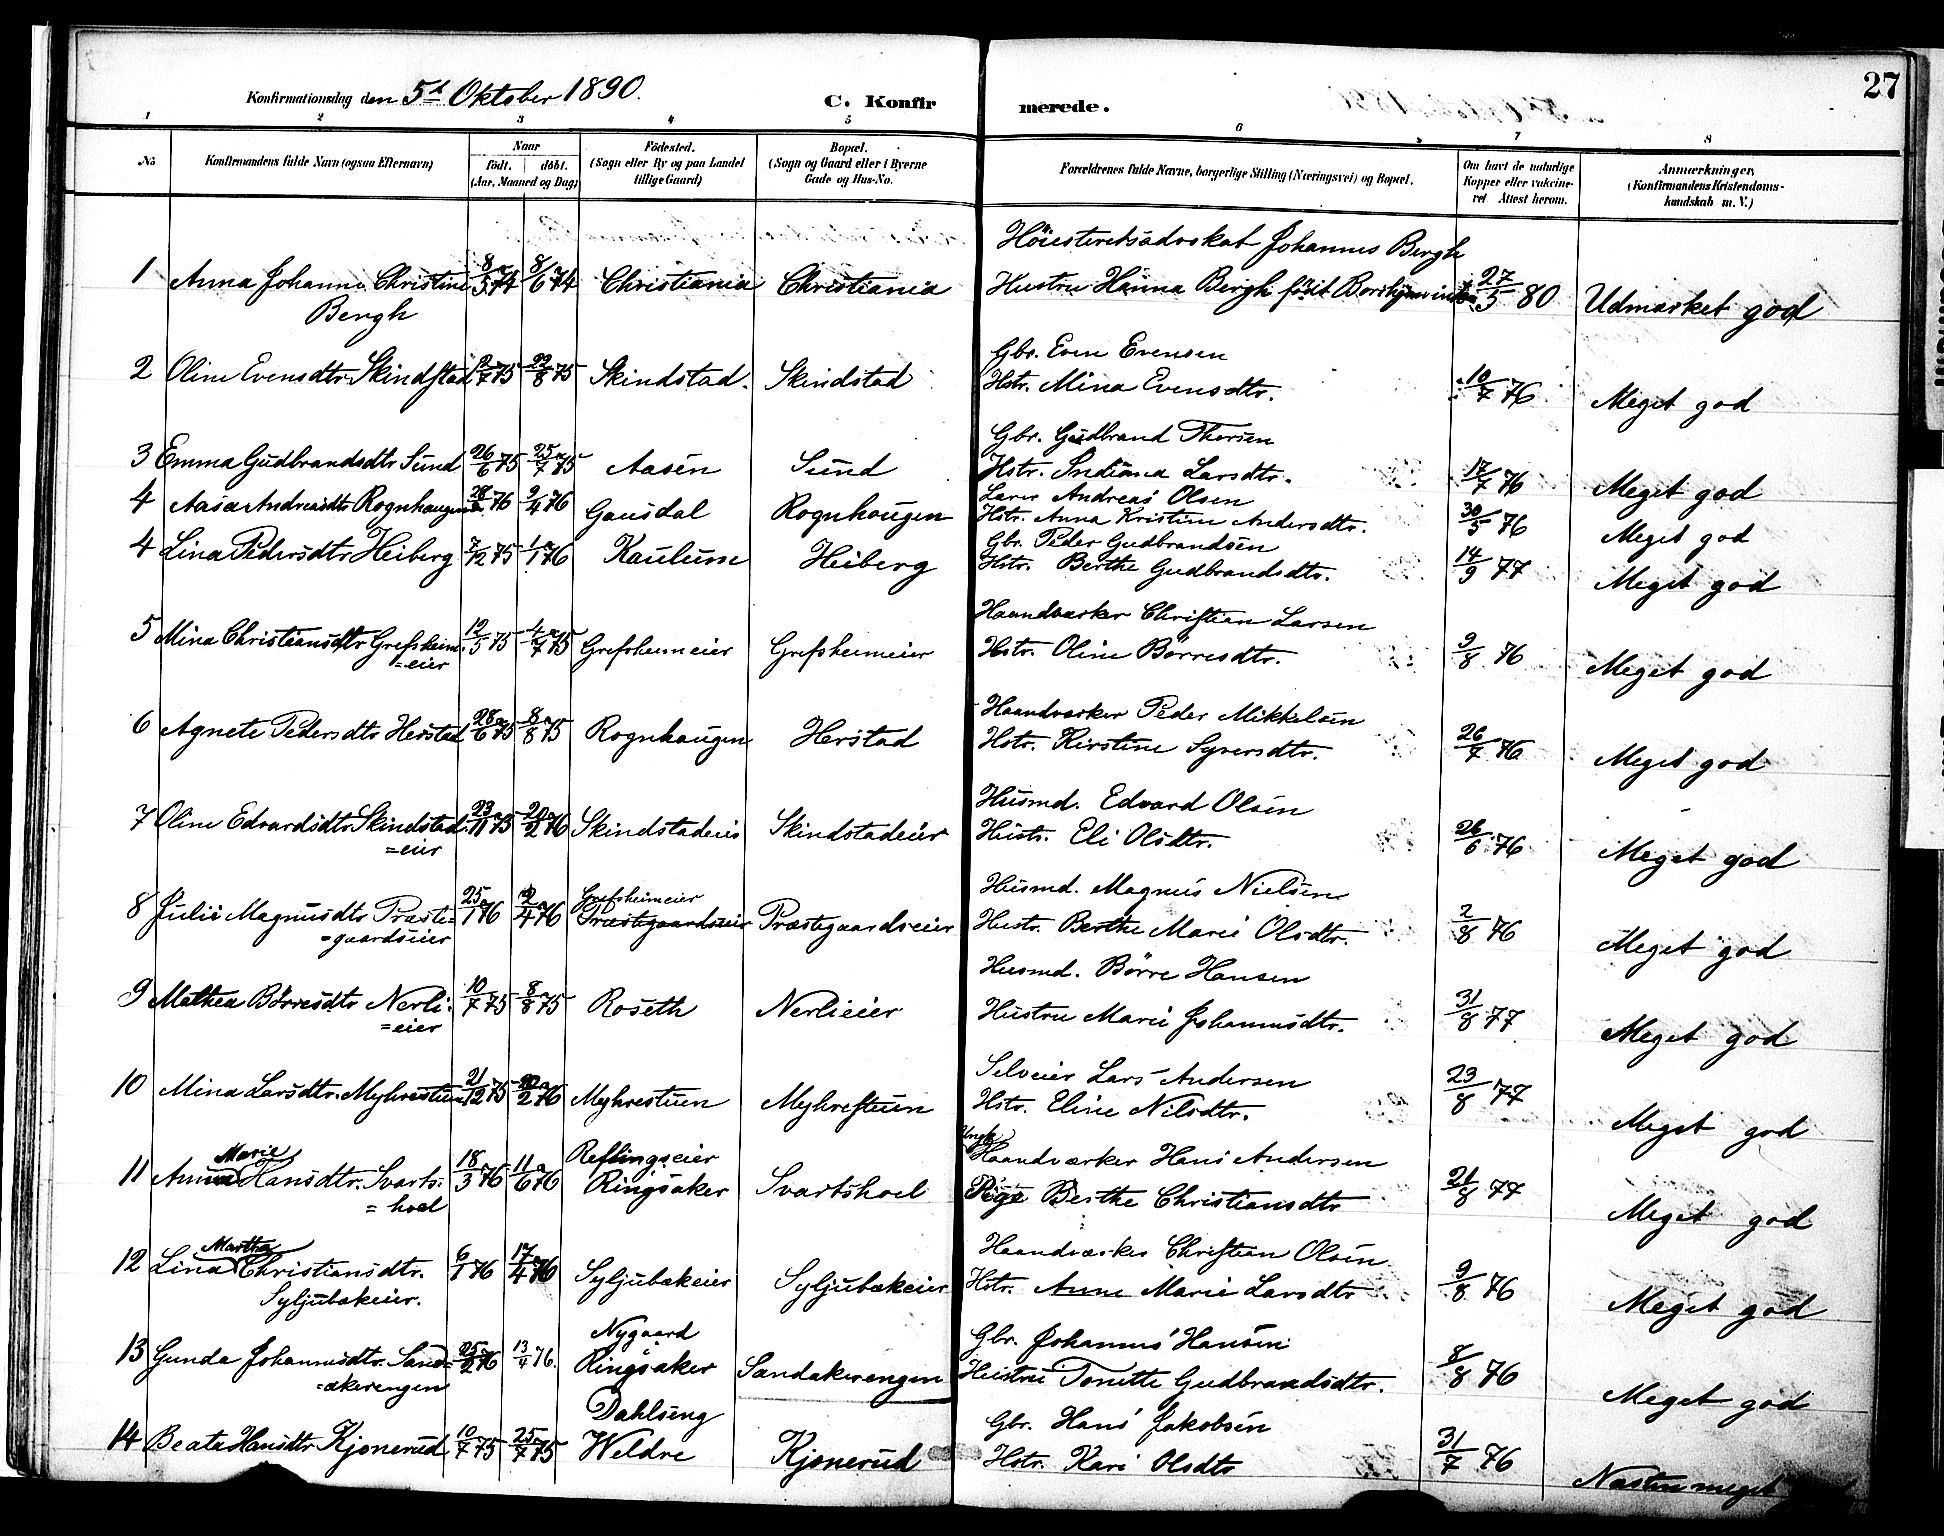 27
Konfirmationsdag den 5te Oktober 1890.
C. Konfirmerede.
1 2 3 4 5 6 7 8
No
Konfirmandens fulde Navn (ogsaa Efternavn)
Naar
født. døbt.
(Aar, Maaned og Dag)
Fødested.
(Sogn eller By og paa Landet
tillige Gaard)
Bopæl.
(Sogn og Gaard eller i Byerne
Gade og Hus-No.
Forældrenes fulde Navne, borgerlige Stilling (Næringsvei) og Bopæl.
Om havt de naturlige
Kopper eller vakcine-
ret Attest herom.
Anmærkninger,
(Konfirmandens Kristendoms-
kundskab m. V.)
Høiesteretsadvokat Johannes Bergh
1 Anna Johanne Christine 8/3 74 8/6 74 Christiania Christiania Hustru Hanna Bergh født 27/5 80 Udmærket god
Bergh
Gbr. Even Evensen
2 Oline Evensdtr Skindstad 75 22/8 75 Skindstad. Skindstad Hstr. Mina Evensdtr. 10/7 76 Meget god
Gbr. Gudbrand Thorsen
3 Emma Gudbrandsdtr Sund 26/6 75 25/7 75 Aasen Sund Hstr. Indiana Larsdtr. 17/7 76 Meget god
Lærer Andreas Olsen
4 Aasa Andreasdtr Rognhaugen 76 9/4 76 Gausdal Rognhougen Hstr. Anna Kristine Andersdtr. 30/5 76 Meget god
Gbr. Peder Gudbrandsen
4 Lina Pedersdtr Heiberg 7/12 75 1/1 76 Kaulum Heiberg Hstr. Berthe Gudbrandsdtr. 14/9 77 Meget god
Haandværker Christian Larsen
5 Mina Christiansdtr Grefsheim= 12/5 75 4/7 75 Grefsheimeier Grefsheimeier Hstr. Oline Børresdtr. 9/8 76 Meget god
=eier
Haandværker Peder Mikkelsen
6 Agnete Pedersdtr Herstad 28/6 75 8/8 75 Rognhaugen Herstad Hstr. Kirstine Syversdtr. 26/7 76 Meget god
Husmd. Edvard Olsen
7 Oline Edvardsdtr Skindstad= 23/11 75 20/2 76 Skindstadeie Skindstadeier Hustr. Eli Olsdtr. 26/6 76 Meget god
=eier
Grefsheimeier Husmd. Magnus Nielsen
8 Julie Magnusdtr Præste= 25/1 76 2/4 76 Præstegaardseier Præstegaardseier Hustr. Berthe Marie Olsdtr. 2/8 76 Meget god
=gaardseier
Husmd. Børre Hansen
9 Mathea Børresdtr Nerli= 10/7 75 8/8 75 Roseth Nerlieier Hustru Marie Johannesdtr. 31/8 77 Meget god
=eier
Selveier Lars Andersen
10 Mina Larsdtr. Myhrestuen 21/12 75 20/2 76 Myhrestuen Myhrestuen Hstr. Eline Nilsdtr. 23/8 77 Meget god
Marie Reflingseier Ungk. Haandværker Hans Andersen
11 Anna Hansdtr. Svarts= 18/3 76 11/6 76 Ringsaker Svartshoel Pige Berthe Christiansdtr 21/8 77 Meget god
=hoel
Martha Haandværker Christian Olsen
12 Lina Christiansdtr. 6/1 76 17/4 76 Syljubækeier Syljubækeier Hstr. Anne Marie Larsdtr 9/8 76 Meget god
Syljubækeier.
Nygaard Gbr. Johannes Hansen
13 Gunda Johannesdtr. Sand= 25/2 76 13/4 76. Ringsaker Sandakerengen Hustru Tonette Gudbrandsdtr. 8/8 76 Meget god
=akerengen
Dahlseng Gbr. Hans Jakobsen
14 Beate Hansdtr Kjonerud 10/7 75 25/7 75 Veldre Kjonerud Hstr. Kari Olsdtr 31/7 76 Næsten meget